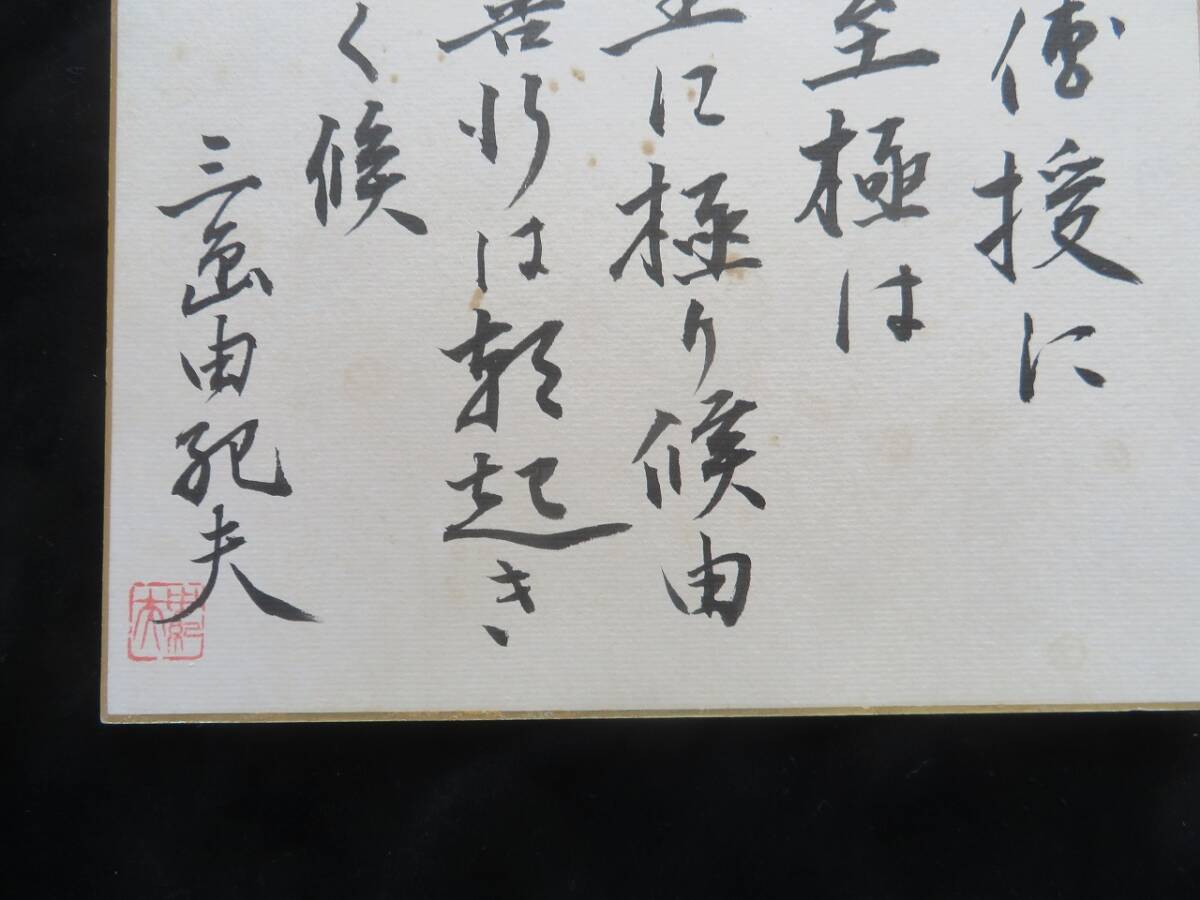 傳授に
至極は
に極り候由
苦行は朝起き
く候
三島由紀夫
由紀夫